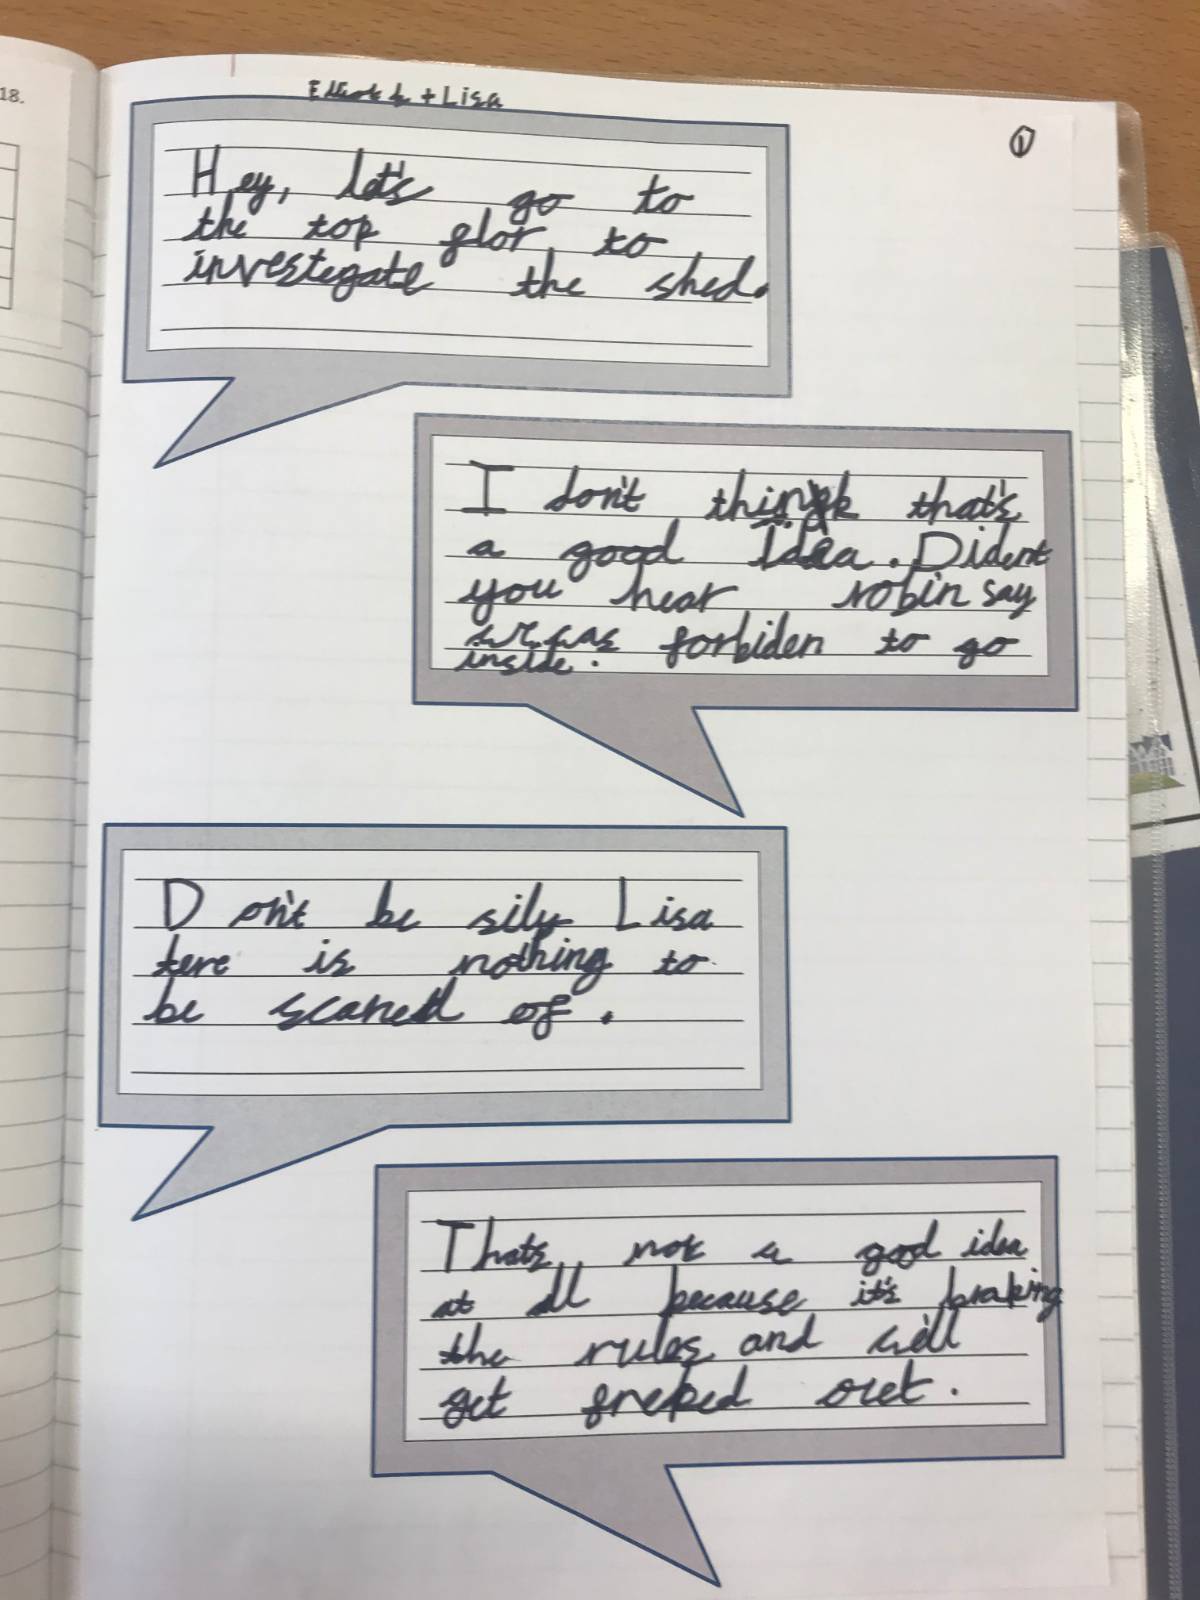 18.
+ Lisa
1
Hey, let's go to
the top flor to
investegate the shed.
I don't think that's
a good idea. Dident
you hear robin say
we was forbiden to go
inside.
Don't be sily Lisa
tere is nothing to
be scared of.
Thats not a good idea
at all because it's braking
the rules and we'll
get freked oret.